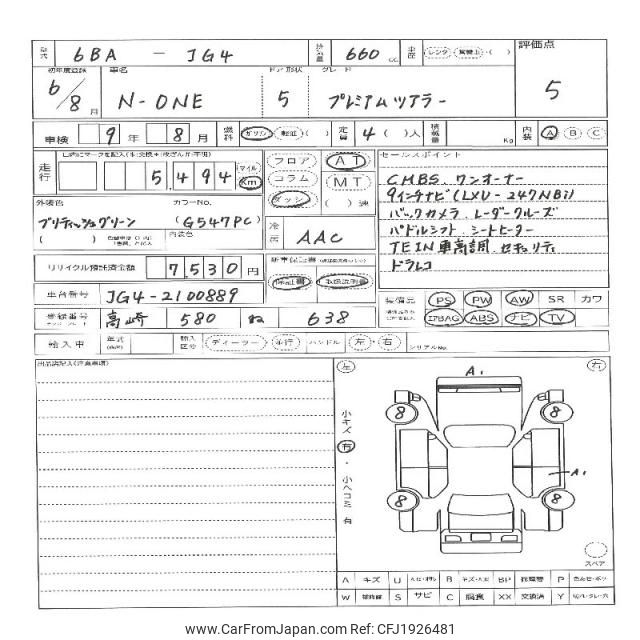 型式 6BA - JG4 排気量 660 cc 車歴 レンタ ( ) 評価点
初年度登録 車名 ドア形状 グレード
6/8月 N-ONE 5 プレミアムツアラー 5
車検 9年 8月 燃料 ガソリン 軽油 ( ) 定員 4( )人 積載量 Kg 内装 A B C
走行 5,494 マイル Km フロア コラム ダッシュ AT MT ( )速
セールスポイント
CMBS. ワンオーナー
9インチナビ(LXU-247NBi)
バックカメラ. レーダークルーズ
パドルシフト シートヒーター
TEIN車高調. セキュリティ
ドラレコ
外装色 カラーNo.
ブリティッシュグリーン (G547PC)
( ) 内装色
冷房 AAC
リサイクル預託済金額 7,530 円
保証書 取扱説明書
車台番号 JG4-2100889
装備品 PS PW AW SR カワ
AIRBAG ABS ナビ TV
登録番号 高崎 580 ね 638
輸入車 年式 輸入区分 ディーラー・並行 ハンドル 左・右 シリアルNo.
左 右
A1
8 8
小キズ 有・小ヘコミ 有
A1
8 8
スペア
A キズ U B BP P
W S サビ C 腐食 XX 交換済 Y
www.CarFromJapan.com Ref:CFJ1926481